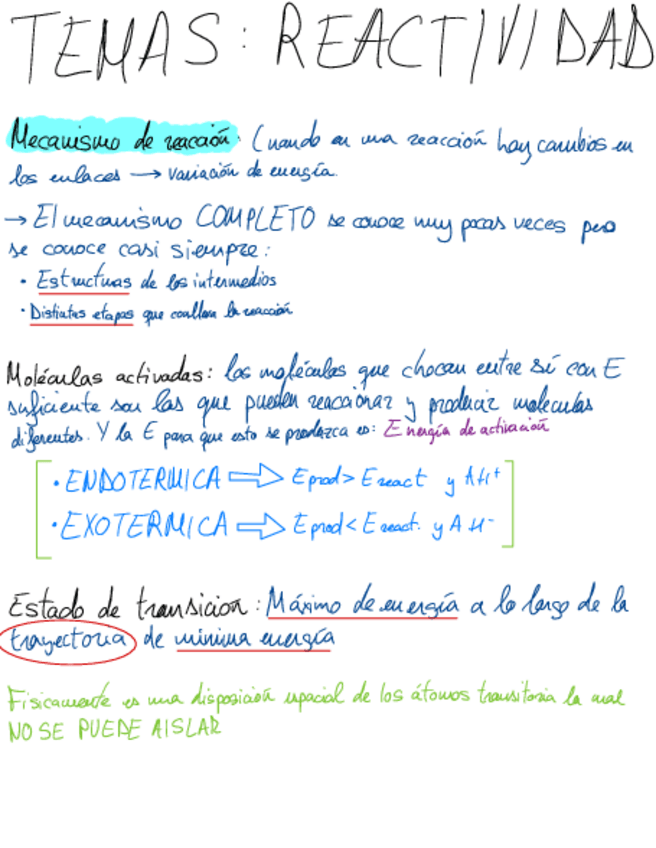 TEMA5: REACTIVIDAD
Mecanismo de reacción: Cuando en una reacción hay cambios en
los enlaces → variación de energía.
→ El mecanismo COMPLETO se conoce muy pocas veces pero
se conoce casi siempre:
• Estructuras de los intermedios
• Distintas etapas que conlleva la reacción
Moléculas activadas: las moléculas que chocan entre sí con E
suficiente son las que pueden reaccionar y producir moleculas
diferentes. Y la E para que esto se produzca es: Energía de activación
• ENDOTERMICA ⇒ Eprod > Ereact y ΔH+
• EXOTERMICA ⇒ Eprod < Ereact. y ΔH-
Estado de transicion: Máximo de energía a lo largo de la
trayectoria de mínima energía
Fisicamente es una disposición espacial de los átomos transitoria la cual
NO SE PUEDE AISLAR